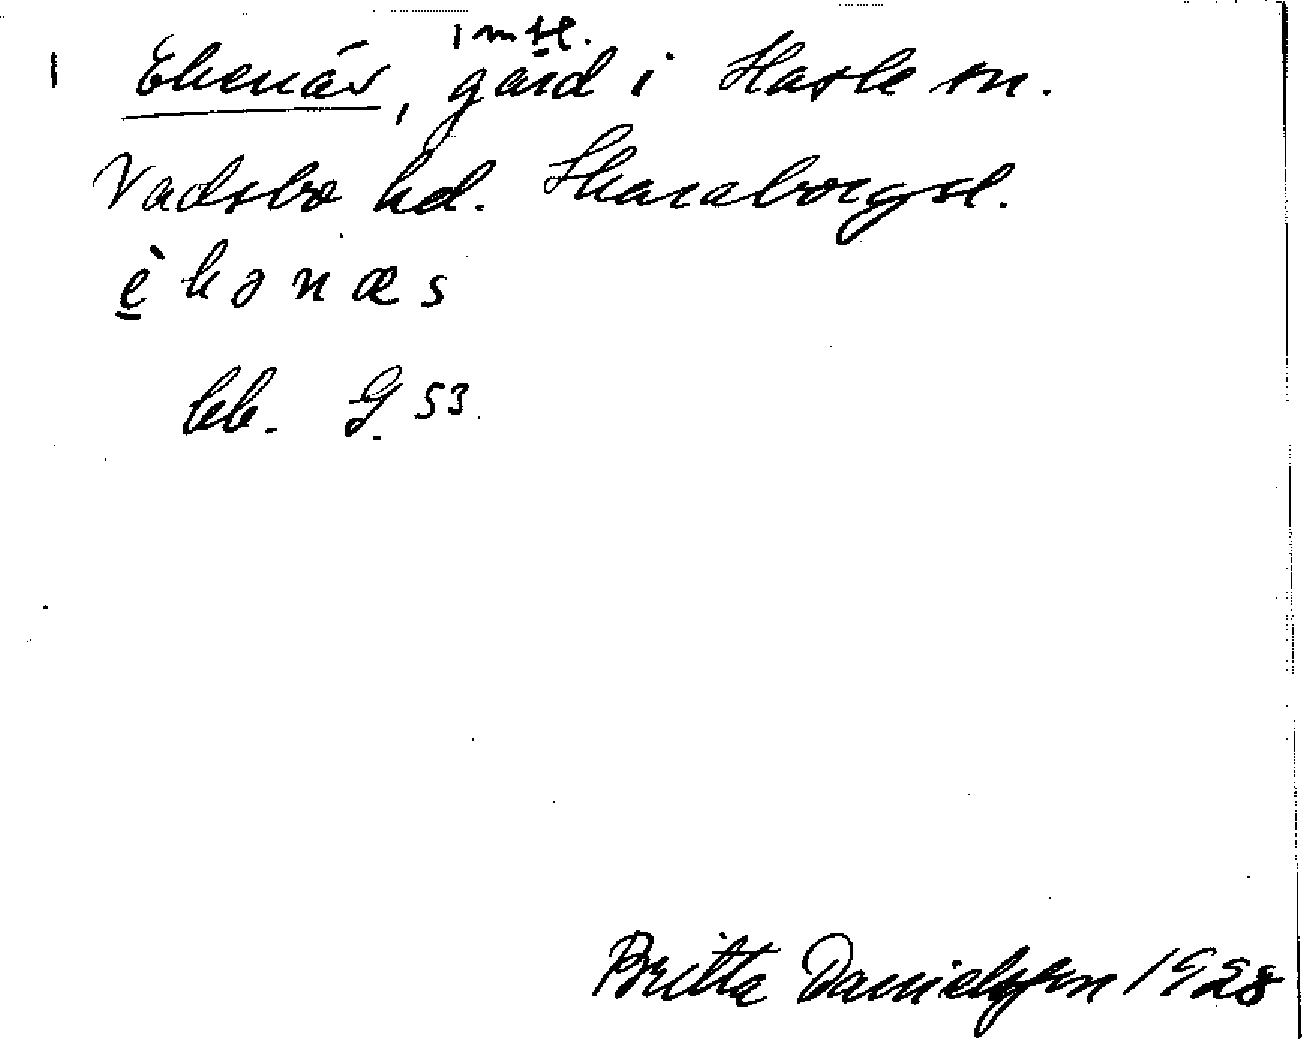 1 mtl.
Ekenäs, gård i Hasle sn.
Vadsbo hd. Skaraborgsl.
èkənæs
kk. G 53.
Britta Danielsson 1928